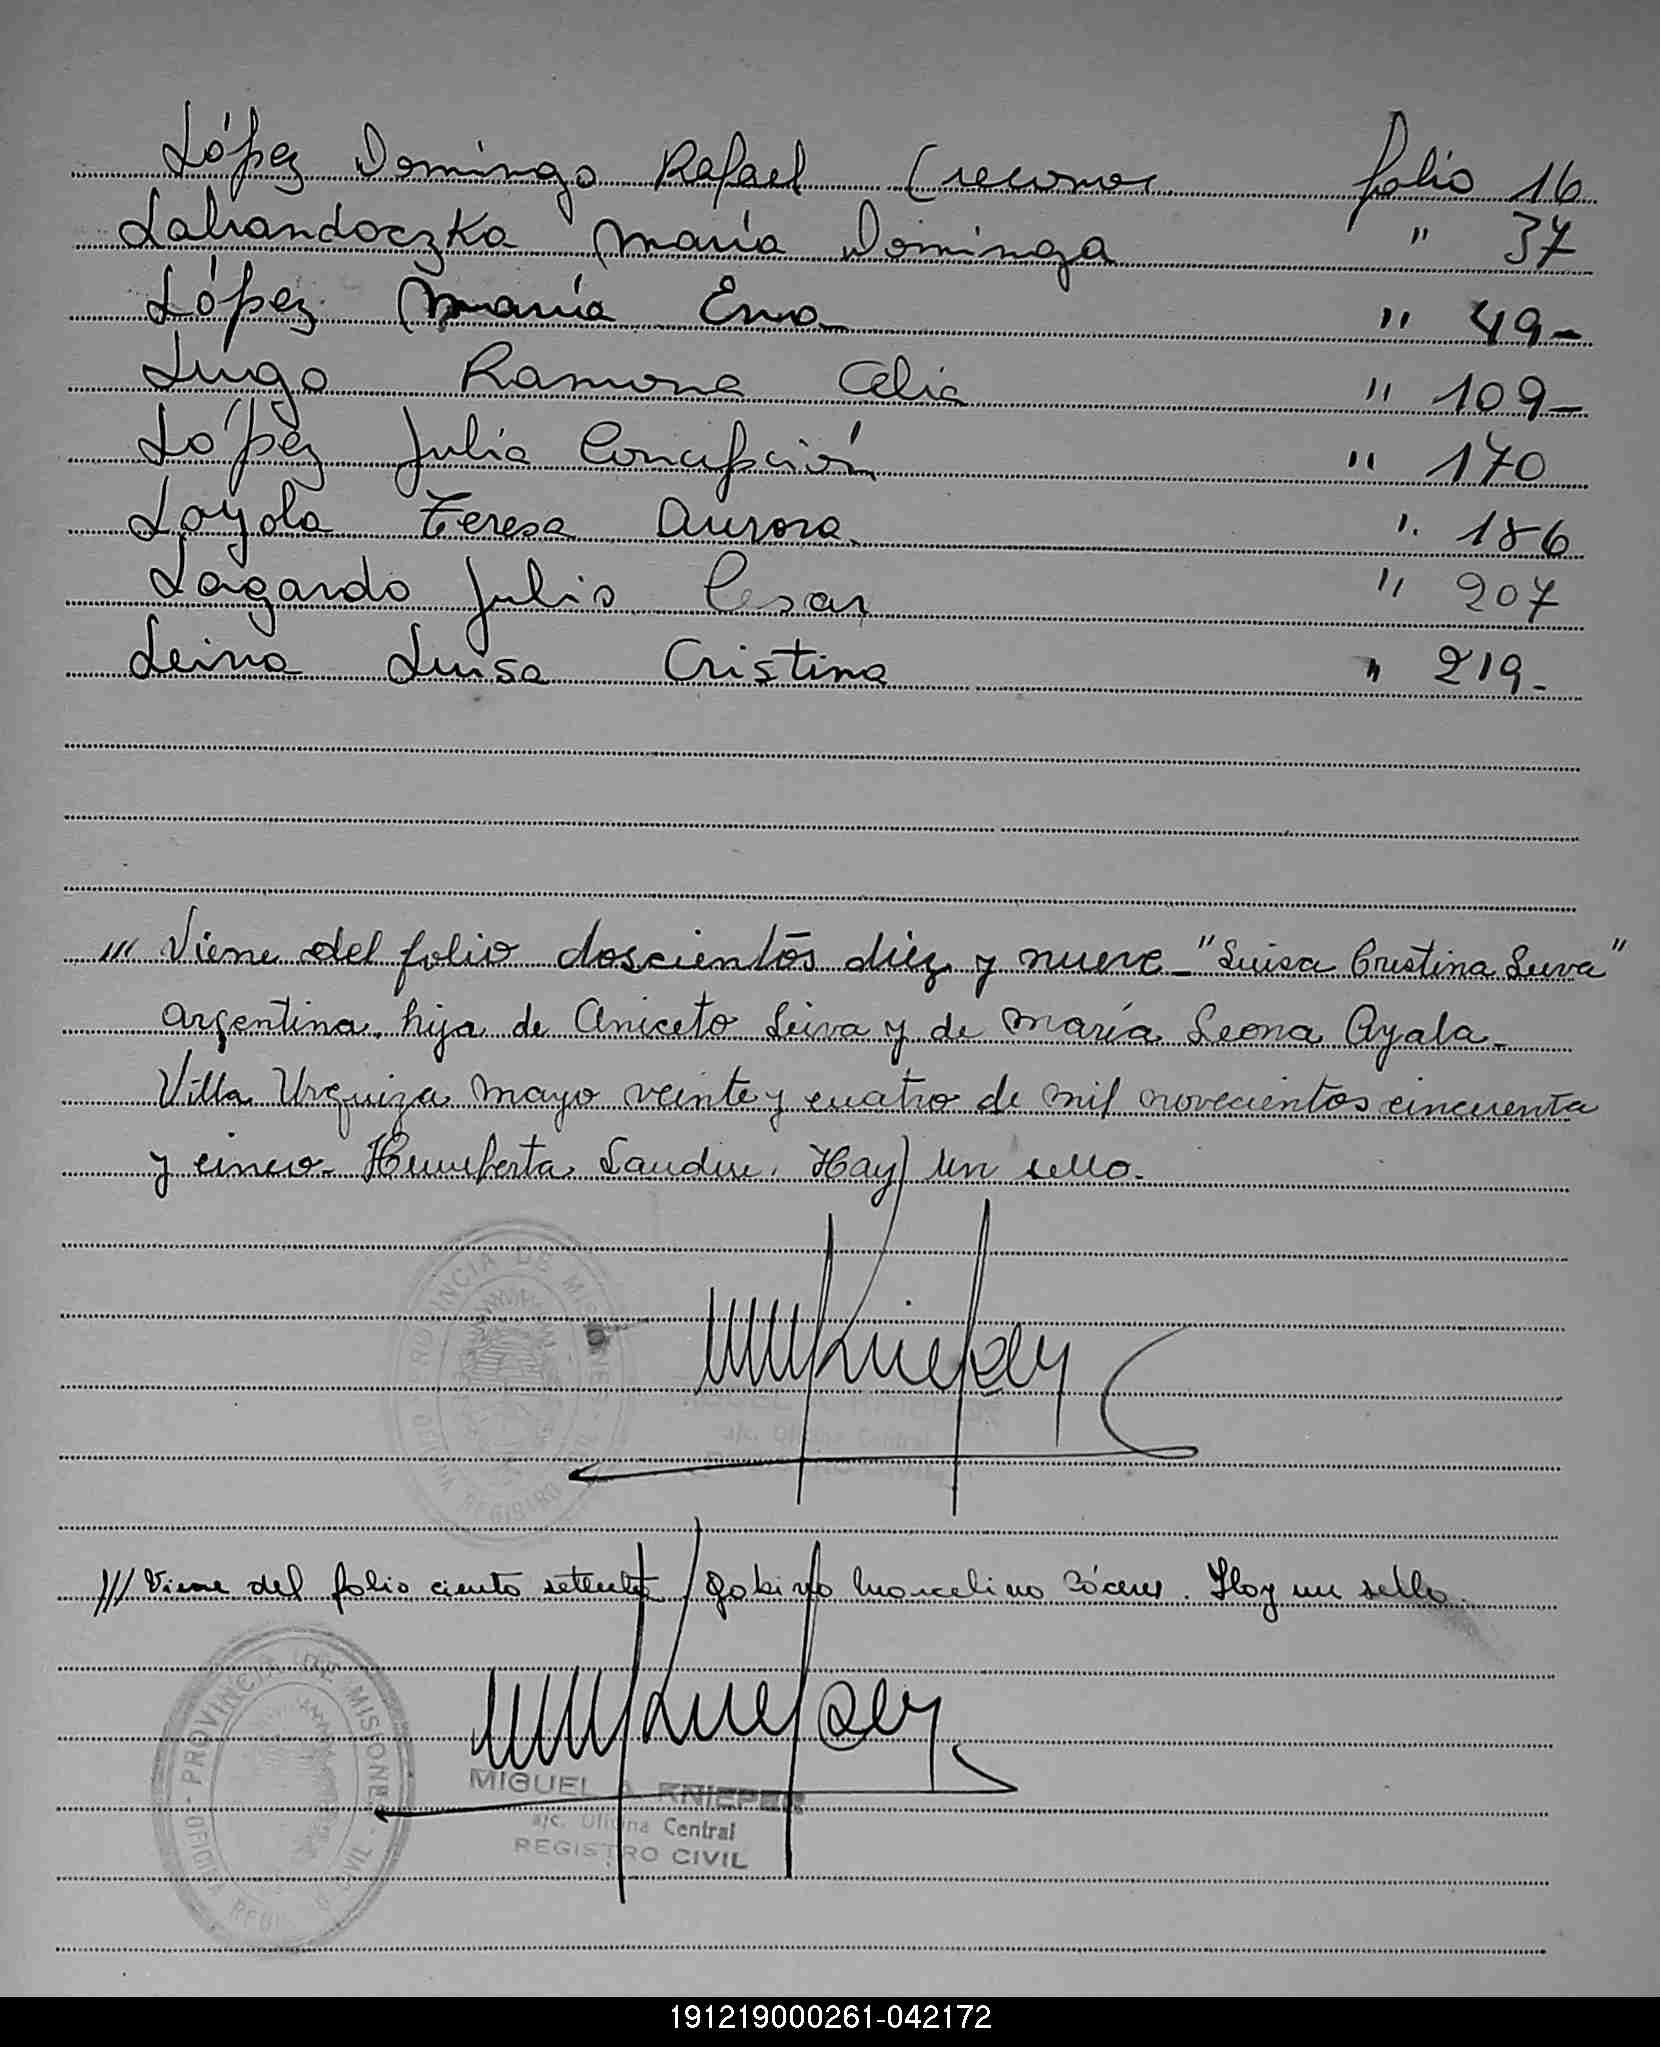 López Domingo Rafael (reconoc folio 16
Labrandoczka María Dominga " 37
López María Ema " 49-
Lugo Ramona Celia " 109-
López Julia Concepción " 170
Loyola Teresa Aurora " 186
Lagardo Julio Cesar " 207
Leiva Luisa Cristina " 219-
/// Viene del folio doscientos diez y nueve - "Luisa Cristina Leiva"
argentina. hija de Aniceto Leiva y de María Leona Ayala-
Villa Urquiza mayo veinte y cuatro de mil novecientos cincuenta
y cinco. Humberta Hay un sello.
PROVINCIA DE MISIONES
OFICINA REGISTRO CIVIL
MIGUEL A. KNIEPER
a/c. Oficina Central
REGISTRO CIVIL
/// Viene del folio ciento setenta / Gabino Marcelino Cáceres. Hay un sello.
PROVINCIA DE MISIONES
OFICINA REGISTRO CIVIL
MIGUEL A. KNIEPER
a/c. Oficina Central
REGISTRO CIVIL
191219000261-042172